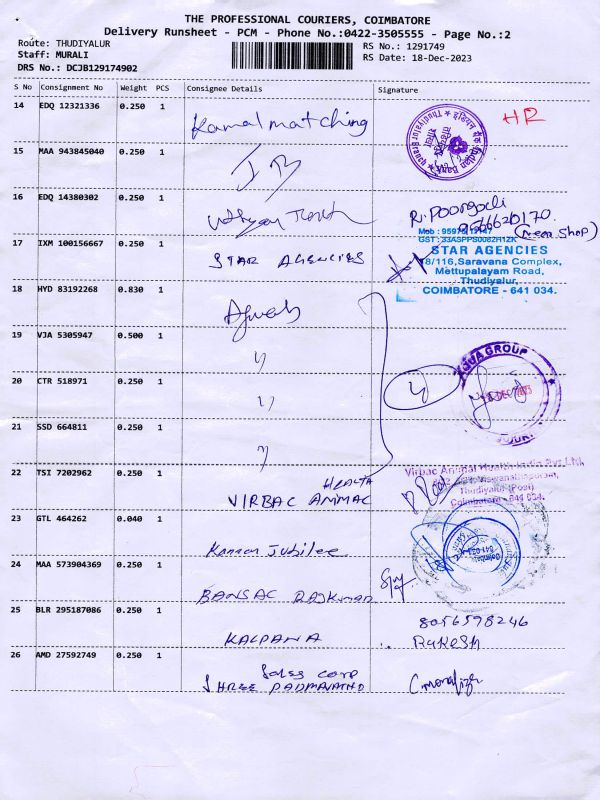 THE PROFESSIONAL COURIERS, COIMBATORE
Delivery Runsheet - PCM - Phone No.:0422-3505555 - Page No.:2
Route: THUDIYALUR
Staff: MURALI
DRS No.: DCJB129174902
RS No.: 1291749
RS Date: 18-Dec-2023
S No Consignment No Weight PCS Consignee Details Signature
14 EDQ 12321336 0.250 1 Kamal matching HR
15 MAA 943845040 0.250 1
Indian Bank
16 EDQ 14380302 0.250 1
R. Poongodi
9566620170
(Near shop)
17 IXM 100156667 0.250 1 STAR AGENCIES
GST : 33ASPPS0082H1ZK
STAR AGENCIES
8/116,Saravana Complex,
Mettupalayam Road,
Thudiyalur,
COIMBATORE - 641 034.
18 HYD 83192268 0.830 1
19 VJA 5305947 0.500 1 "
20 CTR 518971 0.250 1 " 4
AQUA GROUP
21 SSD 664811 0.250 1 "
22 TSI 7202962 0.250 1 VIRBAC ANIMAL HEALTH
Virbac Animal Health India Pvt Ltd,
Thudiyalur (Post)
Coimbatore - 641 034.
23 GTL 464262 0.040 1 Kannan Jubilee
24 MAA 573904369 0.250 1 BANSAL RAJKUMAR
25 BLR 295187086 0.250 1 KALPANA
8056598246
RAKESH
26 AMD 27592749 0.250 1 Sales corp
SHREE PADMAVATHI